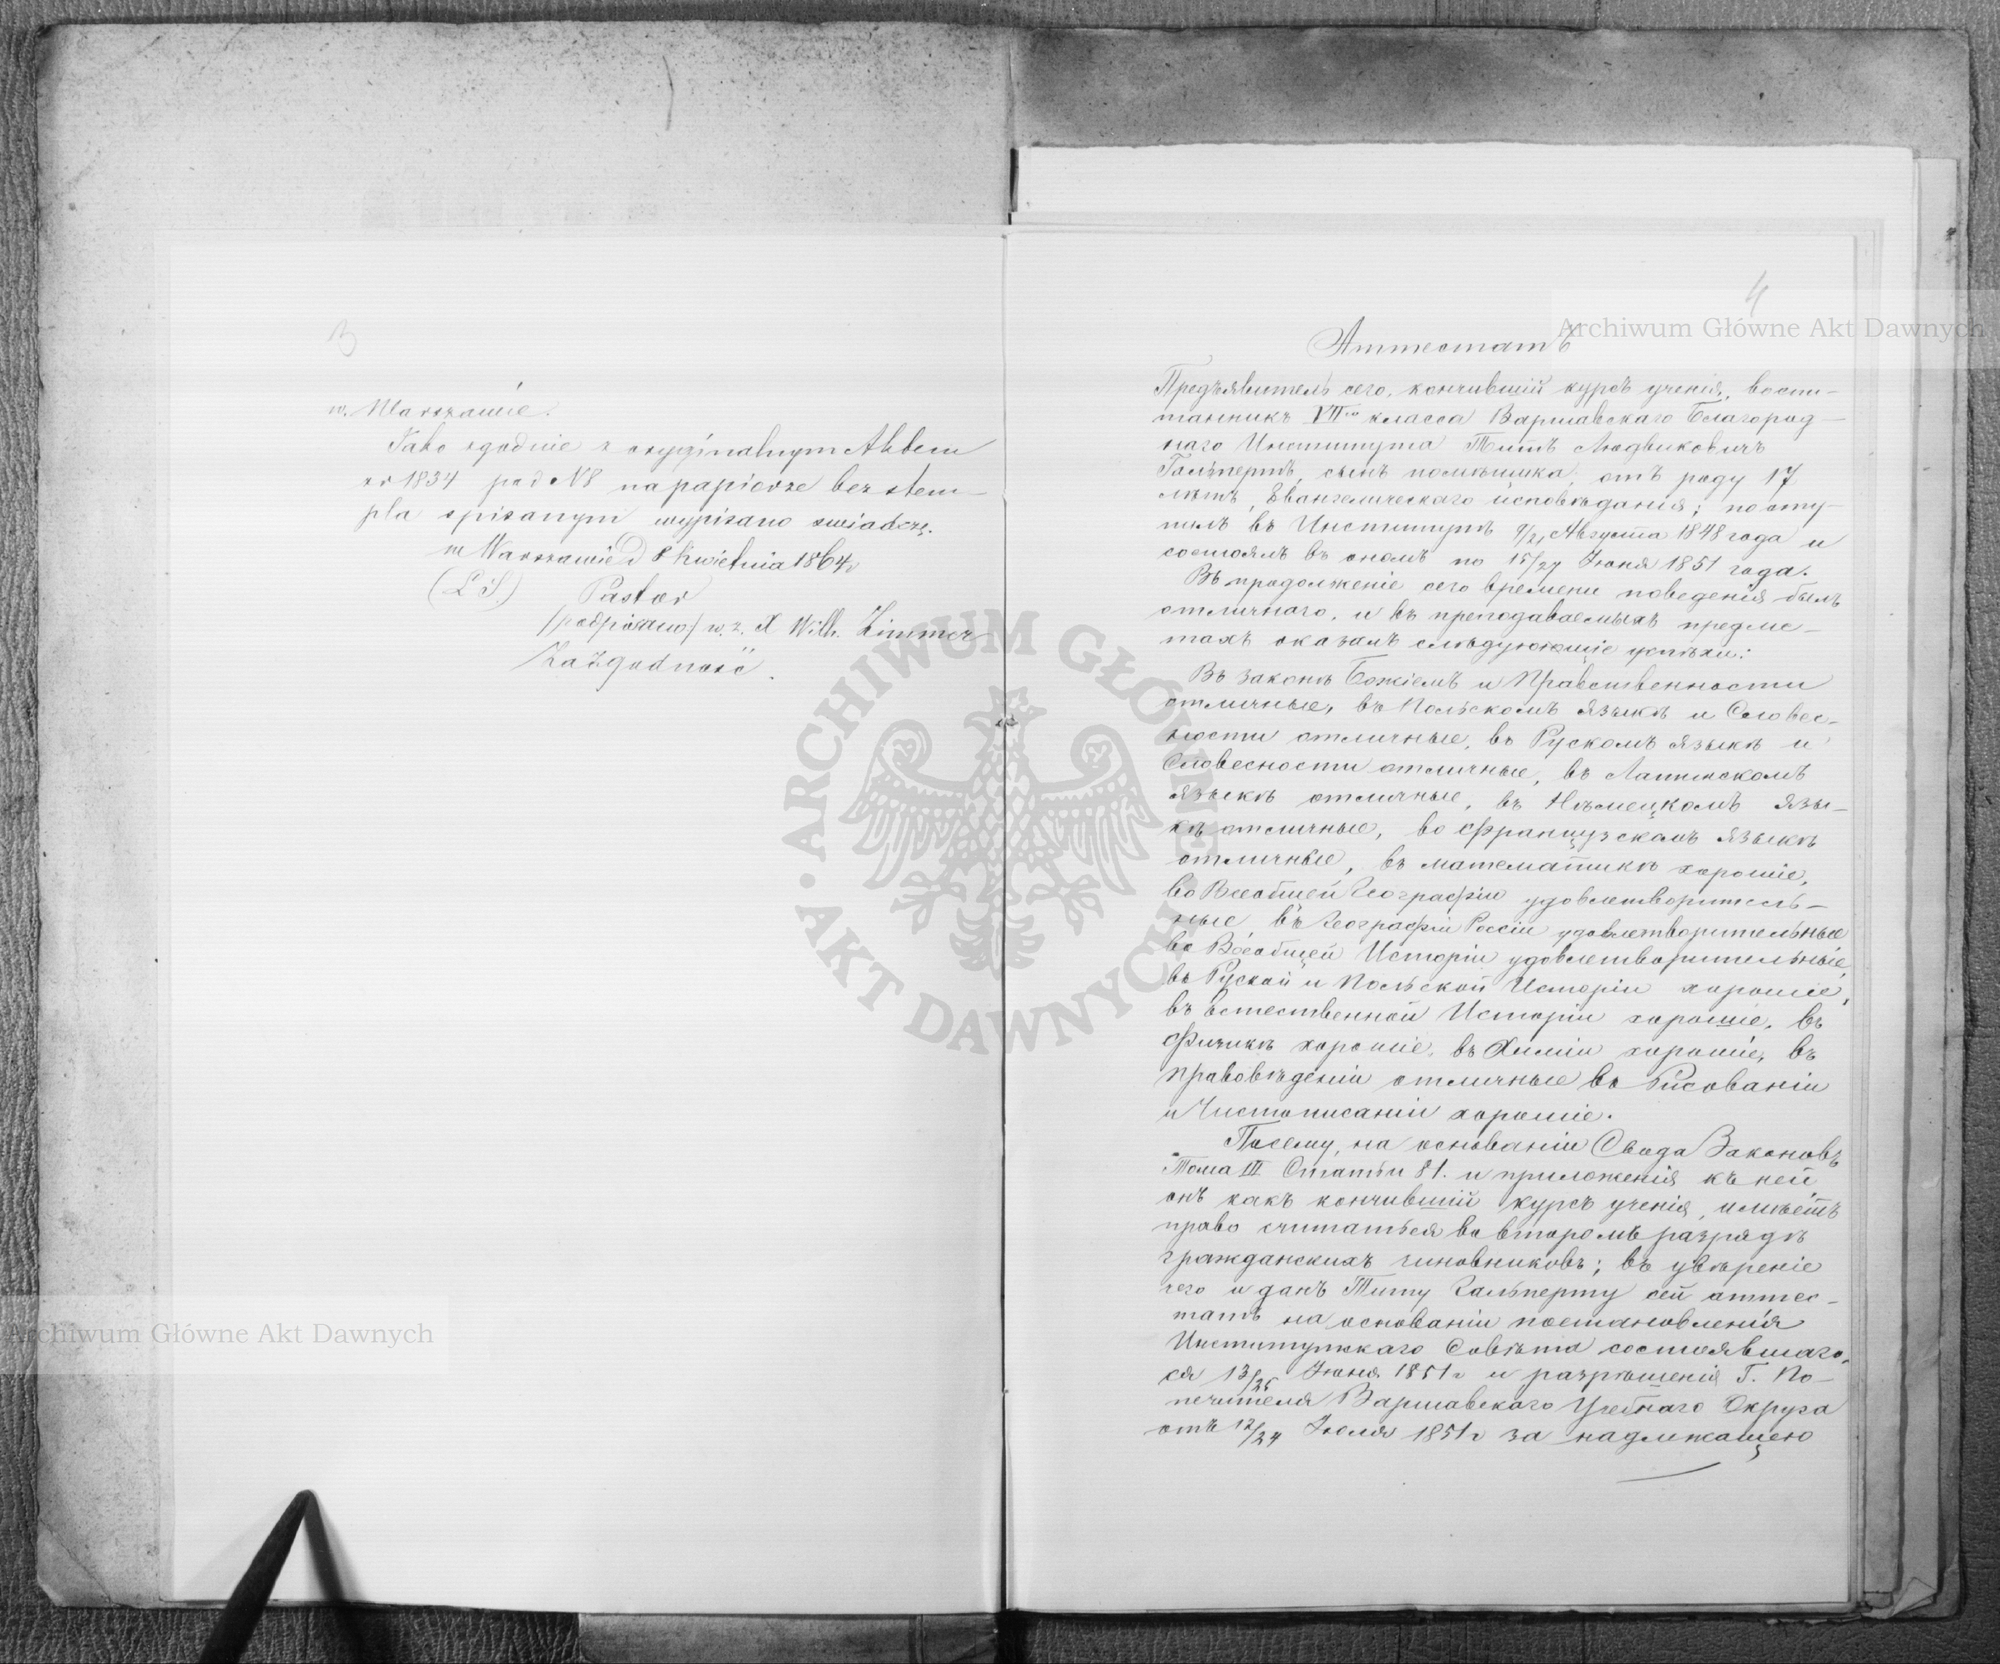 3
w. Warszawie.
Jako zgodnie z oryginalnym Aktem
zr 1834 pod N8 na papierze bez stem-
pla spisanym wypisano swiadczę.
w Warszawie d 8 Kwietnia 1864 r
(L S.) Pastor
/podpisano/ w. z. X Wilh. Zimmer
Za zgodność.
4
Аттестатъ
Предъявитель сего, кончившій курсъ ученія, воспи-
танникъ VII го класса Варшавскаго Благород-
наго Института Титъ Людвиковичъ
Гальпертъ, сынъ помѣщика, отъ роду 17
лѣтъ, Евангелическаго исповѣданія; посту-
пилъ въ Институтъ 9/21 Августа 1848 года и
состоялъ въ ономъ по 15/27 Іюня 1851 года.
Въ продолженіе сего времени поведенія былъ
отличнаго, и въ преподаваемыхъ предме-
тахъ оказалъ слѣдующіе успѣхи:
Въ законѣ Божіемъ и Нравственности
отличные, въ Польскомъ языкѣ и Словес-
ности отличные, въ Рускомъ языкѣ и
Словесности отличные, въ Латинскомъ
языкѣ отличные, въ Нѣмецкомъ язы-
кѣ отличные, во Французскомъ языкѣ
отличные, въ математикѣ хорошіе,
во Всеобщей Географіи удовлетворитель-
ные, въ Географіи Россіи удовлетворительные
во Всеобщей Исторіи удовлетворительные,
въ Руской и Польской Исторіи хорошіе,
въ естественной Исторіи хорошіе, въ
Физикѣ хорошіе, въ Химіи хорошіе, въ
правовѣденіи отличные въ Рисованіи
и Чистописаніи хорошіе.
Посему, на основаніи Свода Законовъ
Тома III Статьи 81. и приложенія къ ней,
онъ какъ кончившій курсъ ученія, имѣетъ
право считаться во второмъ разрядѣ
гражданскихъ чиновниковъ; въ увѣреніе
чего и данъ Титу Гальперту сей аттес-
татъ на основаніи постановленія
Институтскаго Совѣта состоявшаго-
ся 13/25 Іюня 1851 г и разрѣшенія Г. По-
печителя Варшавскаго Учебнаго Округа
отъ 12/24 Іюля 1851 г за надлежащею
Archiwum Główne Akt Dawnych
Archiwum Główne Akt Dawnych
ARCHIWUM GŁÓWNE · AKT DAWNYCH ·